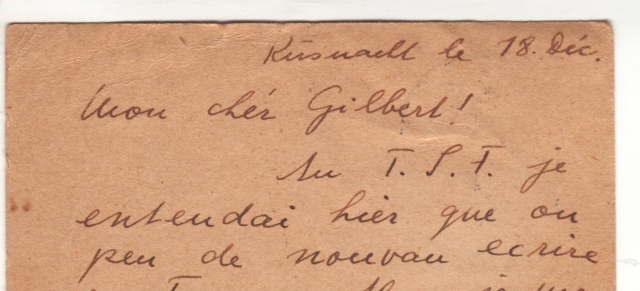 Küsnacht le 18. Déc.
Mon chér Gilbert!
Au T.S.F. je
entendai hier que on
peu de nouvau ecrire